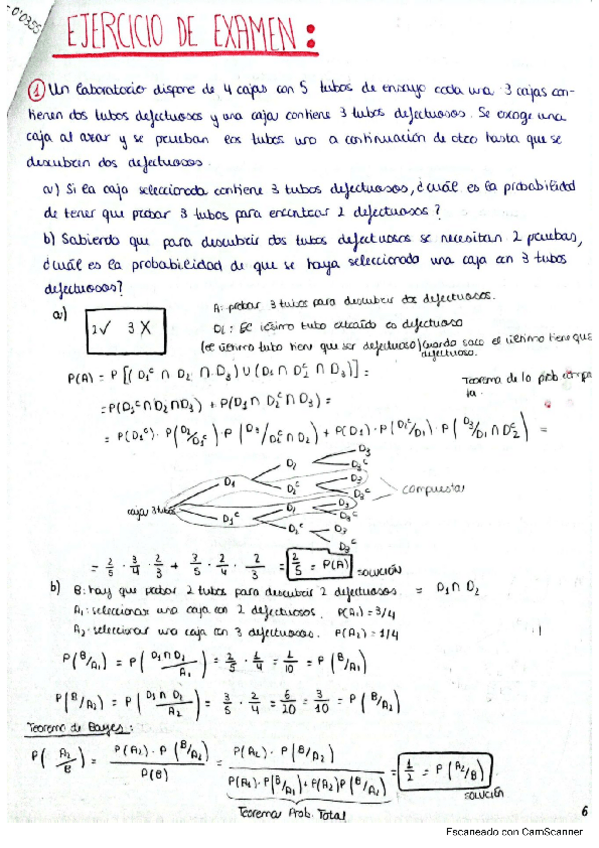 = 0'0355
EJERCICIO DE EXAMEN:
① Un laboratorio dispone de 4 cajas con 5 tubos de ensayo cada una. 3 cajas con-
tienen dos tubos defectuosos y una caja contiene 3 tubos defectuosos. Se escoge una
caja al azar y se prueban los tubos uno a continuación de otro hasta que se
descubran dos defectuosos.
a) Si la caja seleccionada contiene 3 tubos defectuosos, ¿cuál es la probabilidad
de tener que probar 3 tubos para encontrar 2 defectuosos?
b) Sabiendo que para descubrir dos tubos defectuosos se necesitan 2 pruebas,
¿cuál es la probabilidad de que se haya seleccionado una caja con 3 tubos
defectuosos?
a) 2✓ 3X
A: probar 3 tubos para descubrir dos defectuosos.
Di: El iésimo tubo extraído es defectuoso
(el último tubo tiene que ser defectuoso) cuando saco el último tiene que
defectuoso.
P(A) = P[(D₁ᶜ ∩ D₂ ∩ D₃) ∪ (D₁ ∩ D₂ᶜ ∩ D₃)] =
Teorema de la prob compues
ta.
= P(D₁ᶜ ∩ D₂ ∩ D₃) + P(D₁ ∩ D₂ᶜ ∩ D₃) =
= P(D₁ᶜ) · P(D₂/D₁ᶜ) · P(D₃/D₁ᶜ ∩ D₂) + P(D₁) · P(D₂ᶜ/D₁) · P(D₃/D₁ ∩ D₂ᶜ) =
caja 3 tubos
D₁ D₁ᶜ
D₂ D₂ᶜ D₂ D₂ᶜ
D₃ D₃ᶜ D₃ D₃ᶜ D₃ D₃ᶜ D₃ D₃ᶜ
compuesta
= 2/5 · 3/4 · 2/3 + 3/5 · 2/4 · 2/3 = 2/5 = P(A) SOLUCIÓN
b) B: hay que probar 2 tubos para descubrir 2 defectuosos. = D₁ ∩ D₂
A₁: seleccionar una caja con 2 defectuosos. P(A₁) = 3/4
A₂: seleccionar una caja con 3 defectuosos. P(A₂) = 1/4
P(B/A₁) = P(D₁ ∩ D₂/A₁) = 2/5 · 1/4 = 1/10 = P(B/A₁)
P(B/A₂) = P(D₁ ∩ D₂/A₂) = 3/5 · 2/4 = 6/20 = 3/10 = P(B/A₂)
Teorema de Bayes:
P(A₂/B) = P(A₂) · P(B/A₂) / P(B) = P(A₂) · P(B/A₂) / P(A₁) · P(B/A₁) + P(A₂) P(B/A₂) = 1/2 = P(A₂/B)
SOLUCIÓN
Teorema Prob. Total
6
Escaneado con CamScanner